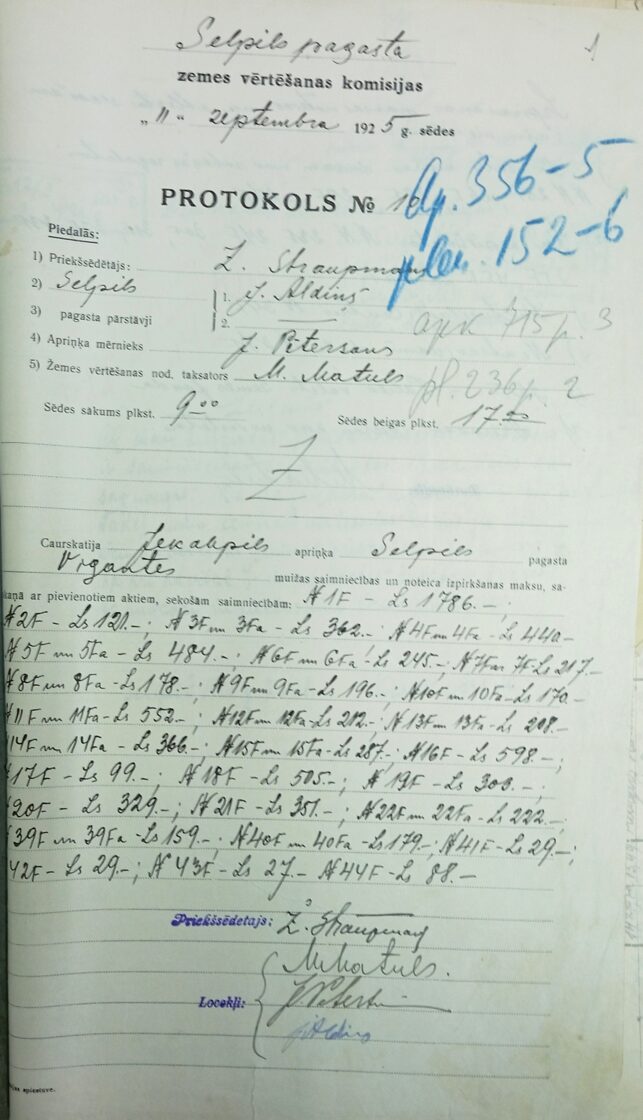 Selpils pagasta
1
zemes vērtēšanas komisijas
„11" septembra 1925 g. sēdes
PROTOKOLS № 10
Ap. 356-5
plm. 152-6
Piedalās:
1) Priekšsēdētājs: Z. Straupmans
2) Selpils 1. J. Aldiņš
3) pagasta pārstāvji 2. —
apk 715 p. 3
4) Apriņķa mērnieks J. Pētersons
5) Zemes vērtēšanas nod. taksators M. Matuls
pl. 236 p. 2
Sēdes sākums plkst. 9 00 Sēdes beigas plkst. 17.
Z
Caurskatija Jēkabpils apriņķa Selpils pagasta
Vrgantes muižas saimniecības un noteica izpirkšanas maksu, sa-
kaņā ar pievienotiem aktiem, sekošām saimniecībām: N 1F - Ls 1786.-;
N 2F - Ls 121.-; N 3F un 3Fa - Ls 362.-; N 4F un 4Fa - Ls 440-
N 5F un 5Fa - Ls 484.-; N 6F un 6Fa - Ls 245.-; N 7F un 7F - Ls 217.-
N 8F un 8Fa - Ls 178.-; N 9F un 9Fa - Ls 196.-; N 10F un 10Fa - Ls 170.-
N 11F un 11Fa - Ls 552.-; N 12F un 12Fa - Ls 212.-; N 13F un 13Fa - Ls 208.-
14F un 14Fa - Ls 366.-; N 15F un 15Fa - Ls 287.- N 16F - Ls 598.-;
17F - Ls 99.-; N 18F - Ls 505.-; N 19F - Ls 303.-;
20F - Ls 329.-; N 21F - Ls 351.-; N 22F un 22Fa - Ls 222.-
39F un 39Fa - Ls 159.-; N 40F un 40Fa - Ls 179.-; N 41F - Ls 29.-;
42F - Ls 29.-; N 43F - Ls 27.- N 44F - Ls 88.-
Priekšsēdetajs: Z. Straupmans
M. Matuls.
Locekļi:
J. Aldiņš
apiestuve.